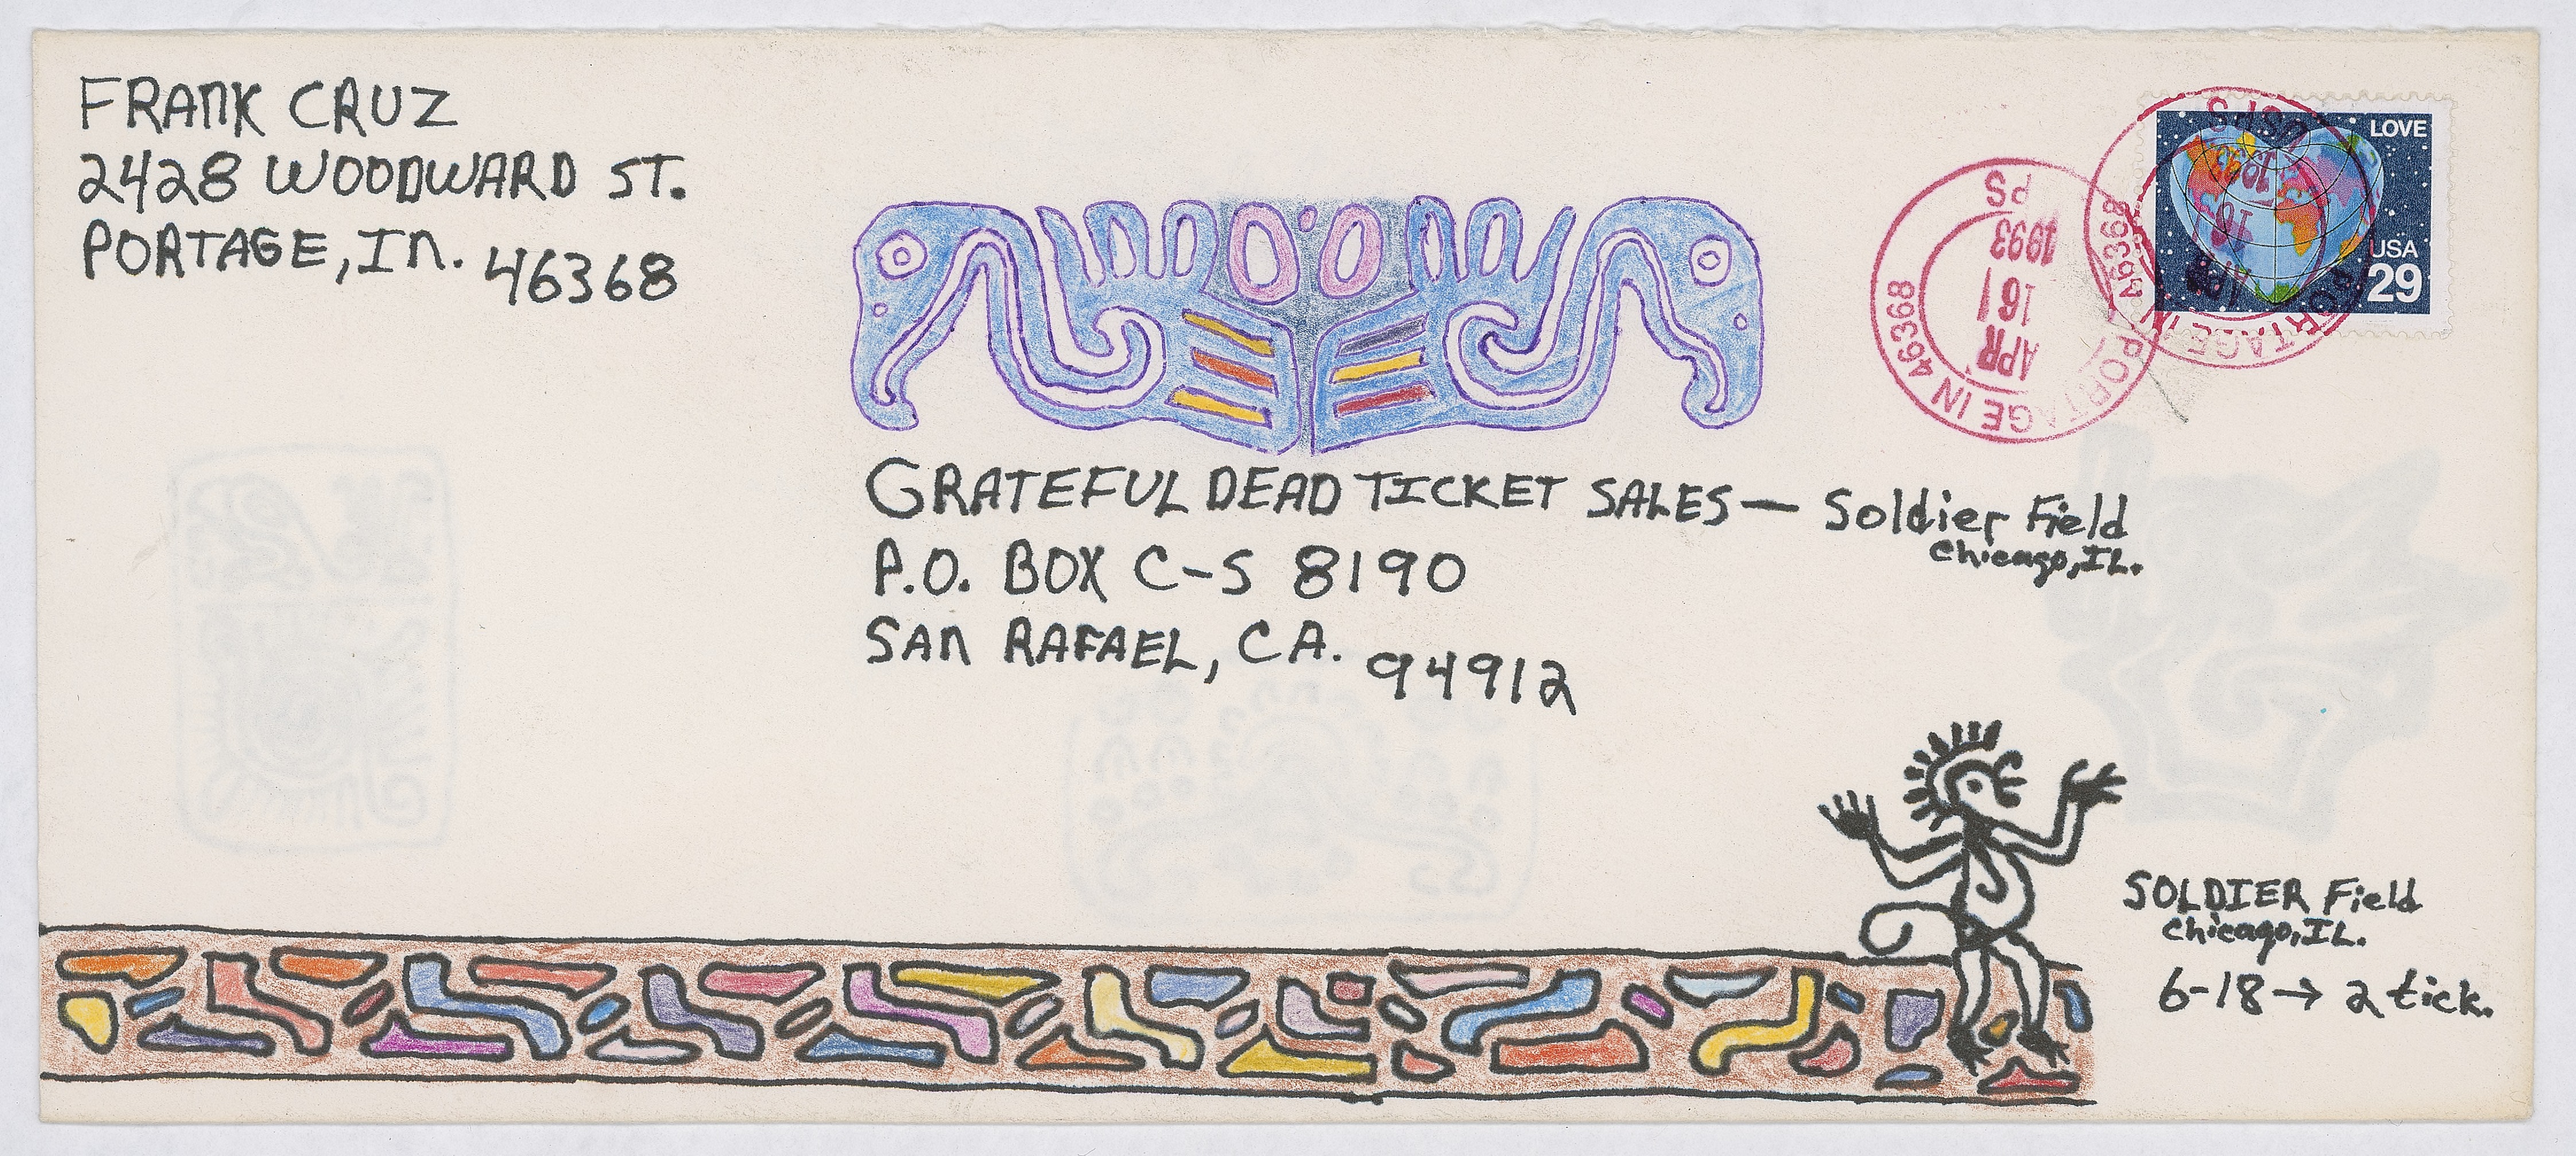 FRANK CRUZ
2428 WOODWARD ST.
PORTAGE, IN. 46368
LOVE
USA
29
USPS
PORTAGE IN 46368
APR
16
1993
PORTAGE IN 46368
APR
161
1993
PS
GRATEFUL DEAD TICKET SALES— Soldier Field
Chicago, IL.
P.O. BOX C-S 8190
SAN RAFAEL, CA. 94912
SOLDIER Field
Chicago, IL.
6-18→ 2 tick.